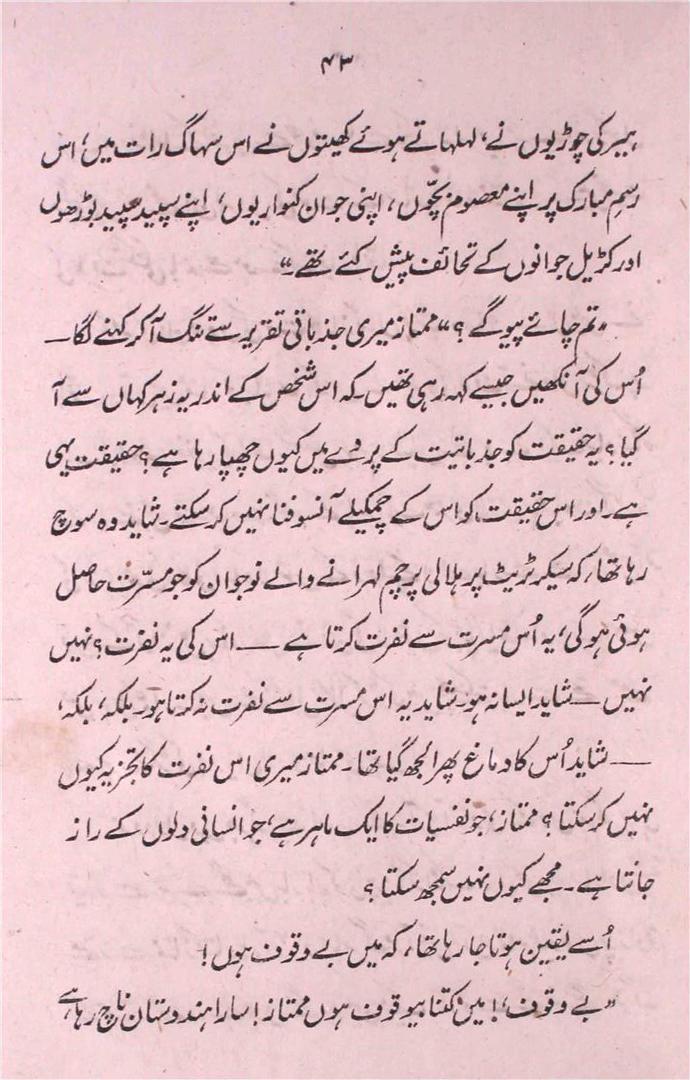 ۴۳
ہیر کی چوڑیوں نے، لہلہاتے ہوئے کھیتوں نے اس سہاگ رات میں، اس
رسمِ مبارک پر اپنے معصوم بچّوں، اپنی جوان کنواریوں، اپنے سپید سپید بوڑھوں
اور کڑیل جوانوں کے تحائف پیش کئے تھے۔“
”تم چائے پیو گے؟“ ممتاز میری جذباتی تقریر سے تنگ آ کر کہنے لگا —
اُس کی آنکھیں جیسے کہہ رہی تھیں۔ کہ اس شخص کے اندر یہ زہر کہاں سے آ
گیا؟ یہ حقیقت کو جذباتیت کے پردے میں کیوں چھپا رہا ہے؟ حقیقت یہی
ہے۔ اور اس حقیقت کو اس کے چمکیلے آنسو فنا نہیں کر سکتے۔ شاید وہ سوچ
رہا تھا، کہ سیکرٹریٹ پر ہلالی پرچم لہرانے والے نوجوان کو جو مسرّت حاصل
ہوئی ہوگی، یہ اُس مسرت سے نفرت کرتا ہے — اس کی یہ نفرت؟ نہیں
نہیں — شاید ایسا نہ ہو۔ شاید یہ اس مسرت سے نفرت نہ کرتا ہو۔ بلکہ، بلکہ،
— شاید اُس کا دماغ پھر الجھ گیا تھا۔ ممتاز میری اس نفرت کا تجزیہ کیوں
نہیں کر سکتا؟ ممتاز، جو نفسیات کا ایک ماہر ہے، جو انسانی دلوں کے راز
جانتا ہے۔ مجھے کیوں نہیں سمجھ سکتا؟
اُسے یقین ہوتا جا رہا تھا، کہ میں بے وقوف ہوں!
”بے وقوف،! میں کتنا بیوقوف ہوں ممتاز! سارا ہندوستان ناچ رہا ہے